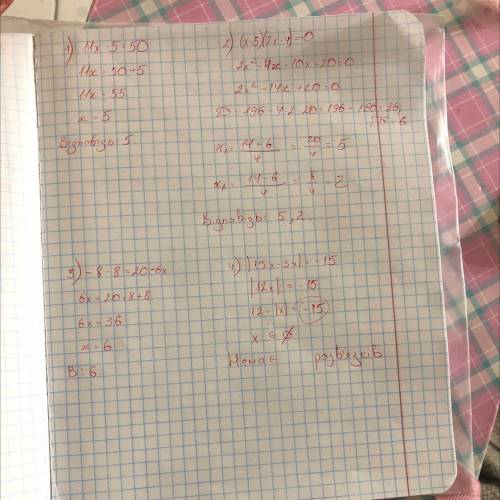 1) 11x - 5 = 50
11x = 50 + 5
11x = 55
x = 5
Відповідь: 5
2) (x-5)(2x-4)=0
2x² - 4x - 10x + 20 = 0
2x² - 14x + 20 = 0
D = 196 - 4·2·20 = 196 - 160 = 36, √D = 6
x₁ = (14+6)/4 = 20/4 = 5
x₂ = (14-6)/4 = 8/4 = 2
Відповідь: 5, 2
3) -8-8=20-6x
6x = 20+8+8
6x = 36
x = 6
В: 6
4) |15x-3x| = -15
|12x| = -15
12·|x| = -15
x ∈ ∅
Немає розв'язків